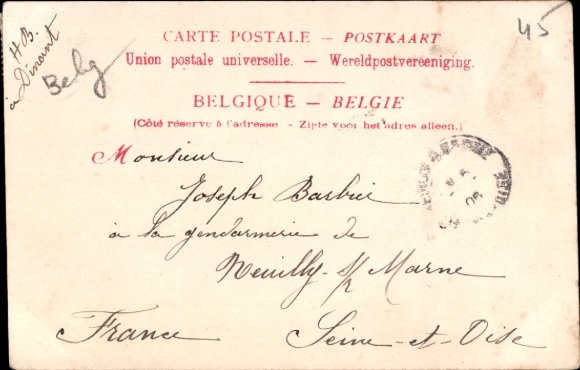 H B.
à Dinant
Belg
45
CARTE POSTALE — POSTKAART
Union postale universelle. — Wereldpostvereeniging.
BELGIQUE — BELGIE
(Côté réservé à l'adresse. - Zijde voor het adres alleen.)
Monsieur
Joseph Barbier
à la gendarmerie de
Neuilly-s/r Marne
France Seine-et-Oise